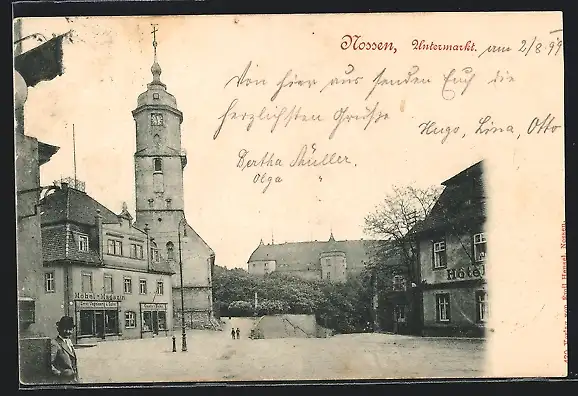 Nossen, Untermarkt. am 2/8 99
Von hier aus senden Euch die
herzlichsten Grüße
Hugo, Lina, Otto
Bertha Müller.
Olga "
Möbel-Magazin
Hôtel
420 Verlag von Emil Hensel, Nossen.